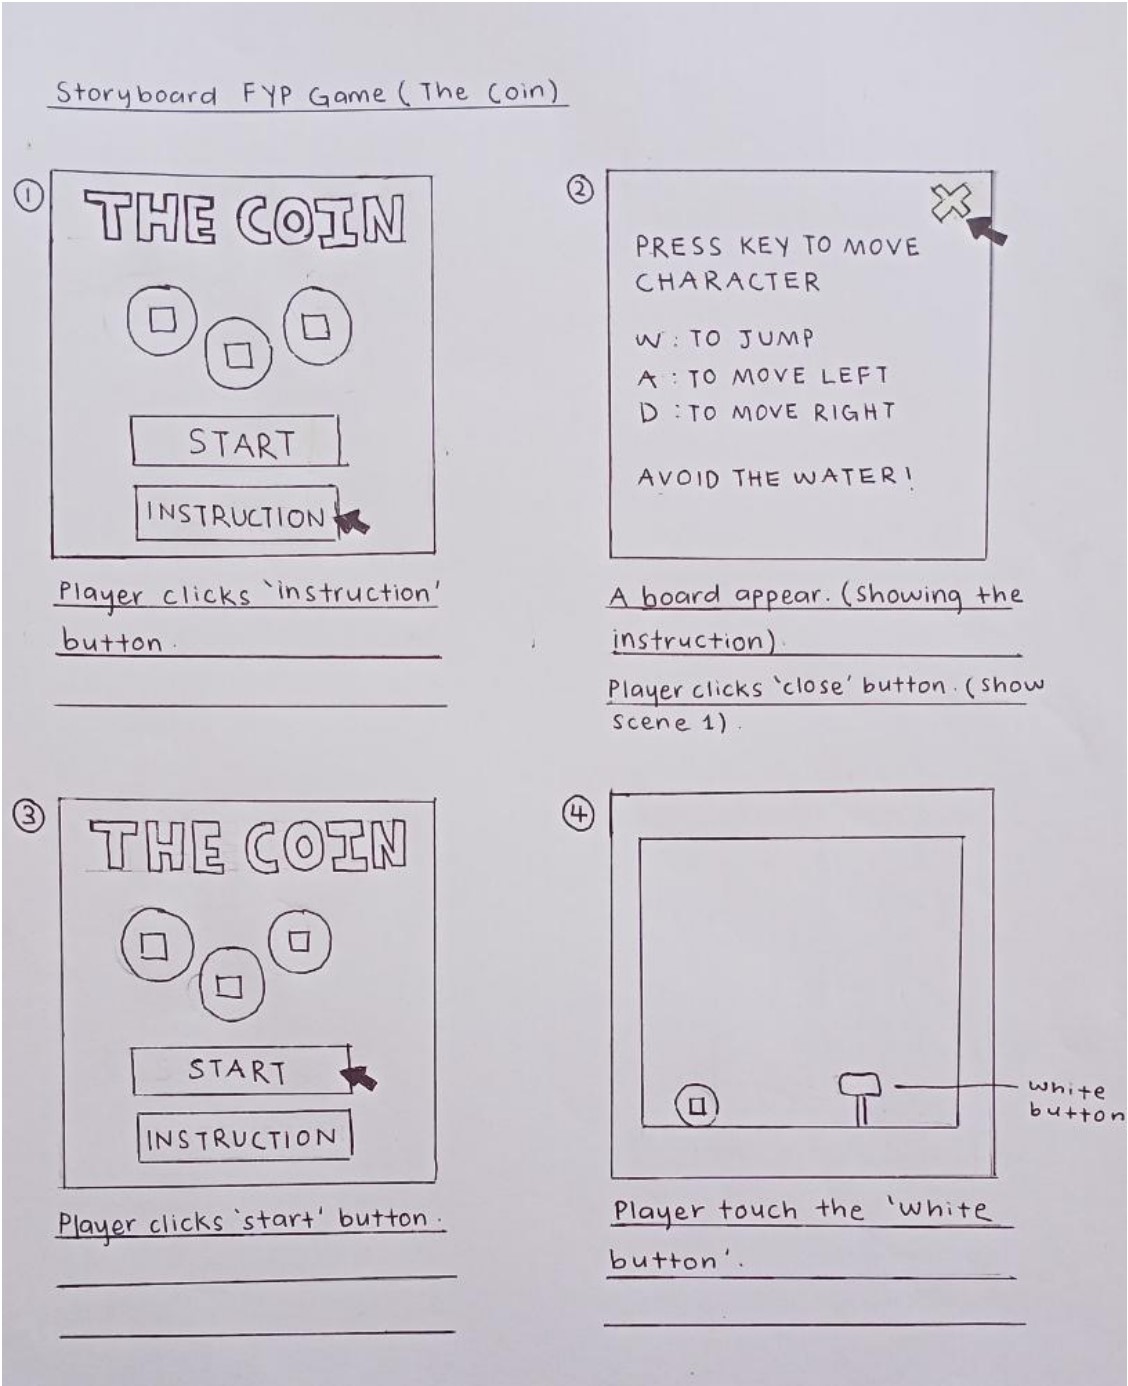 Storyboard FYP Game (The Coin)
①
THE COIN
START
INSTRUCTION
Player clicks 'instruction'
button.
②
PRESS KEY TO MOVE
CHARACTER
W : TO JUMP
A : TO MOVE LEFT
D : TO MOVE RIGHT
AVOID THE WATER!
A board appear. (showing the
instruction).
Player clicks 'close' button. (show
scene 1).
③
THE COIN
START
INSTRUCTION
Player clicks 'start' button.
④
white
button
Player touch the 'white
button'.